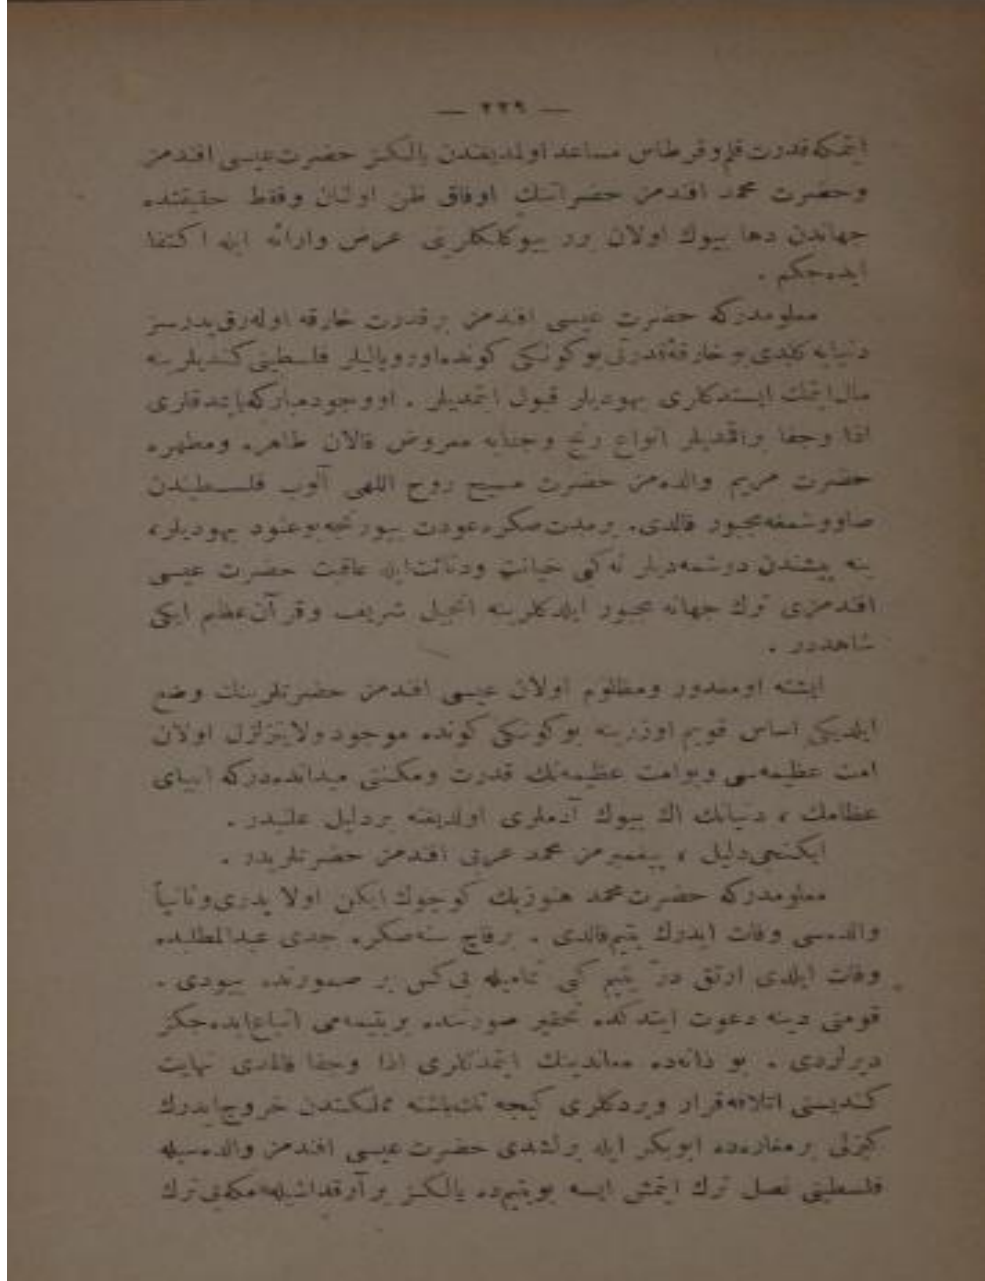 — ٢٢٩ —
ایتمكه قدرت قلم و قرطاس مساعد اولمدیغندن یالكز حضرت عیسی افندمز
وحضرت محمد افندمز حضراتنك اوفاق ظن اولنان وفقط حقیقتده
جهاندن دها بیوك اولان برر بیوكلكلرینی عرض وارائه ایله اكتفا
ایده‌جكم .
معلومدركه حضرت عیسی افندمز بر قدرت خارقه اوله‌رق پدرسز
دنیایه كلدی بو خارقهٔ قدرتی بوكونكی كونده اوروپالیلر فلسطینی كندیلرینه
مال ایتمك ایستدكلری یهودیلر قبول ایتمدیلر . او وجود مباركه یاپمدقلری
اذا وجفا براقمدیلر انواع رنج وجنایه معروض قالان طاهره ومطهره
حضرت مریم والده‌مز حضرت مسیح روح اللهی آلوب فلسطیندن
صاووشمغه مجبور قالدی. بر مدت صكره عودت بیورنجه بو عنود یهودیلر،
ینه پیشندن دوشمه‌دیلر نه كبی خیانت ودنائت ایله عاقبت حضرت عیسی
افندمزی ترك جهانه مجبور ایلدكلرینه انجیل شریف وقرآن عظیم ایكی
شاهددر .
ایشته او مغدور ومظلوم اولان عیسی افندمز حضرتلرینك وضع
ایلدیكی اساس قویم اوزرینه بوكونكی كونده موجود ولایتزلزل اولان
امت عظیمه‌سی وبو امت عظیمه‌نك قدرت ومكنتی میدانده‌دركه انبیای
عظامك ، دنیانك اك بیوك آدملری اولدیغنه بر دلیل علنیدر .
ایكنجی دلیل ، پیغمبرمز محمد عربی افندمز حضرتلریدر .
معلومدركه حضرت محمد هنوز پك كوچوك ایكن اولا پدری وثانیاً
والده‌سی وفات ایدرك یتیم قالدی . برقاچ سنه صكره جدی عبدالمطلبده
وفات ایلدی ارتق در یتیم كبی تمامیله بی كس بر صورتده بیودی .
قومنی دینه دعوت ایتدكده تحقیر صورتنده بر یتیمه‌می اتباع ایده‌جكز
دیرلردی . بو ذاته‌ده معاندینك ایتمدكلری اذا وجفا قالمدی نهایت
كندیسنی اتلافه قرار ویردكلری كیجه تك باشنه مملكتندن خروج ایدرك
كیزلی بر مغاره‌ده ابوبكر ایله برلشدی حضرت عیسی افندمز والده‌سیله
فلسطینی نصل ترك ایتمش ایسه بو یتیم‌ده یالكز بر آرقداشیله مكه‌یی ترك